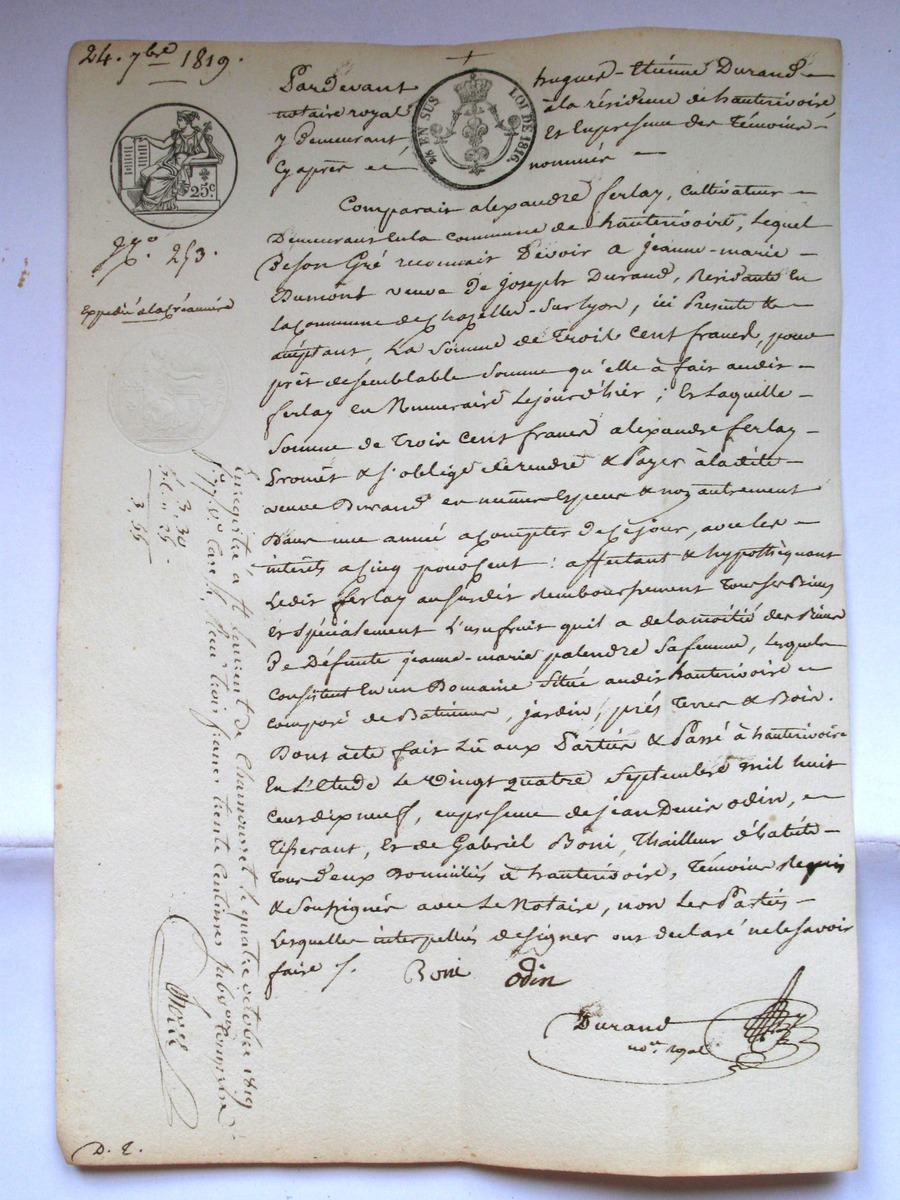 24. 7bre 1819.
Pardevant hugues-Etienne Durand
notaire royal à la résidence de hauterivoire
y Demeurant Et En presence des Témoins
Cy après et nommés
25c
¼ EN SUS LOI DE 1816.
N.o 253.
Expedié à la Créancière
Comparait alexandre ferlay, cultivateur
Demeurant En la commune de hauterivoire, Lequel
De son Gré reconnait Devoir a jeanne-marie
Dumont veuve de joseph Durand, Residante En
la Commune de Chazelles-Sur lyon, ici Presente &
acceptant, La Somme de Trois Cent francs, pour
prêt de semblable Somme qu'elle à fait audit
ferlay en Numeraire Le jour d'hier; Et Laquelle
Somme de Trois Cent francs alexandre ferlay
Promet & s'oblige de rendre & Payer à ladite
veuve Durand en numer. Espèces & non autrement
Dans une année a compter de Ce jour, avec les
interêts a Cinq pour Cent: affectant & hypothèquant
Ledit ferlay au susdit Remboursement Tous ses Biens
Et spécialement L'usufruit quil a de la moitié des Biens
De Défunte jeanne-marie palandre Sa femme, Lesquels
Consistent En un Domaine Situé audit hauterivoire
Composé de Batiments, jardin, prés Terres & Bois.
Dont acte fait Lû aux Parties & Passé à hauterivoire
En L'Etude Le Vingt quatre Septembre mil huit
Cent dix neuf, en presence de jean Denis odin,
Tisserant, Et de Gabriel Boni, Thailleur d'habits
Tous Deux Domiciliés à hauterivoire, Témoins Requis
& Soussignés avec Le Notaire, non Les Parties
Lesquelles interpellés de signer ont declaré ne le Savoir
faire /.
Boni odin
Durand
nore royal
Enregistré à St Laurent de Chamousset le quatre octobre 1819
Reçu trois francs trente centimes
3,30
25
3,55
D. E.